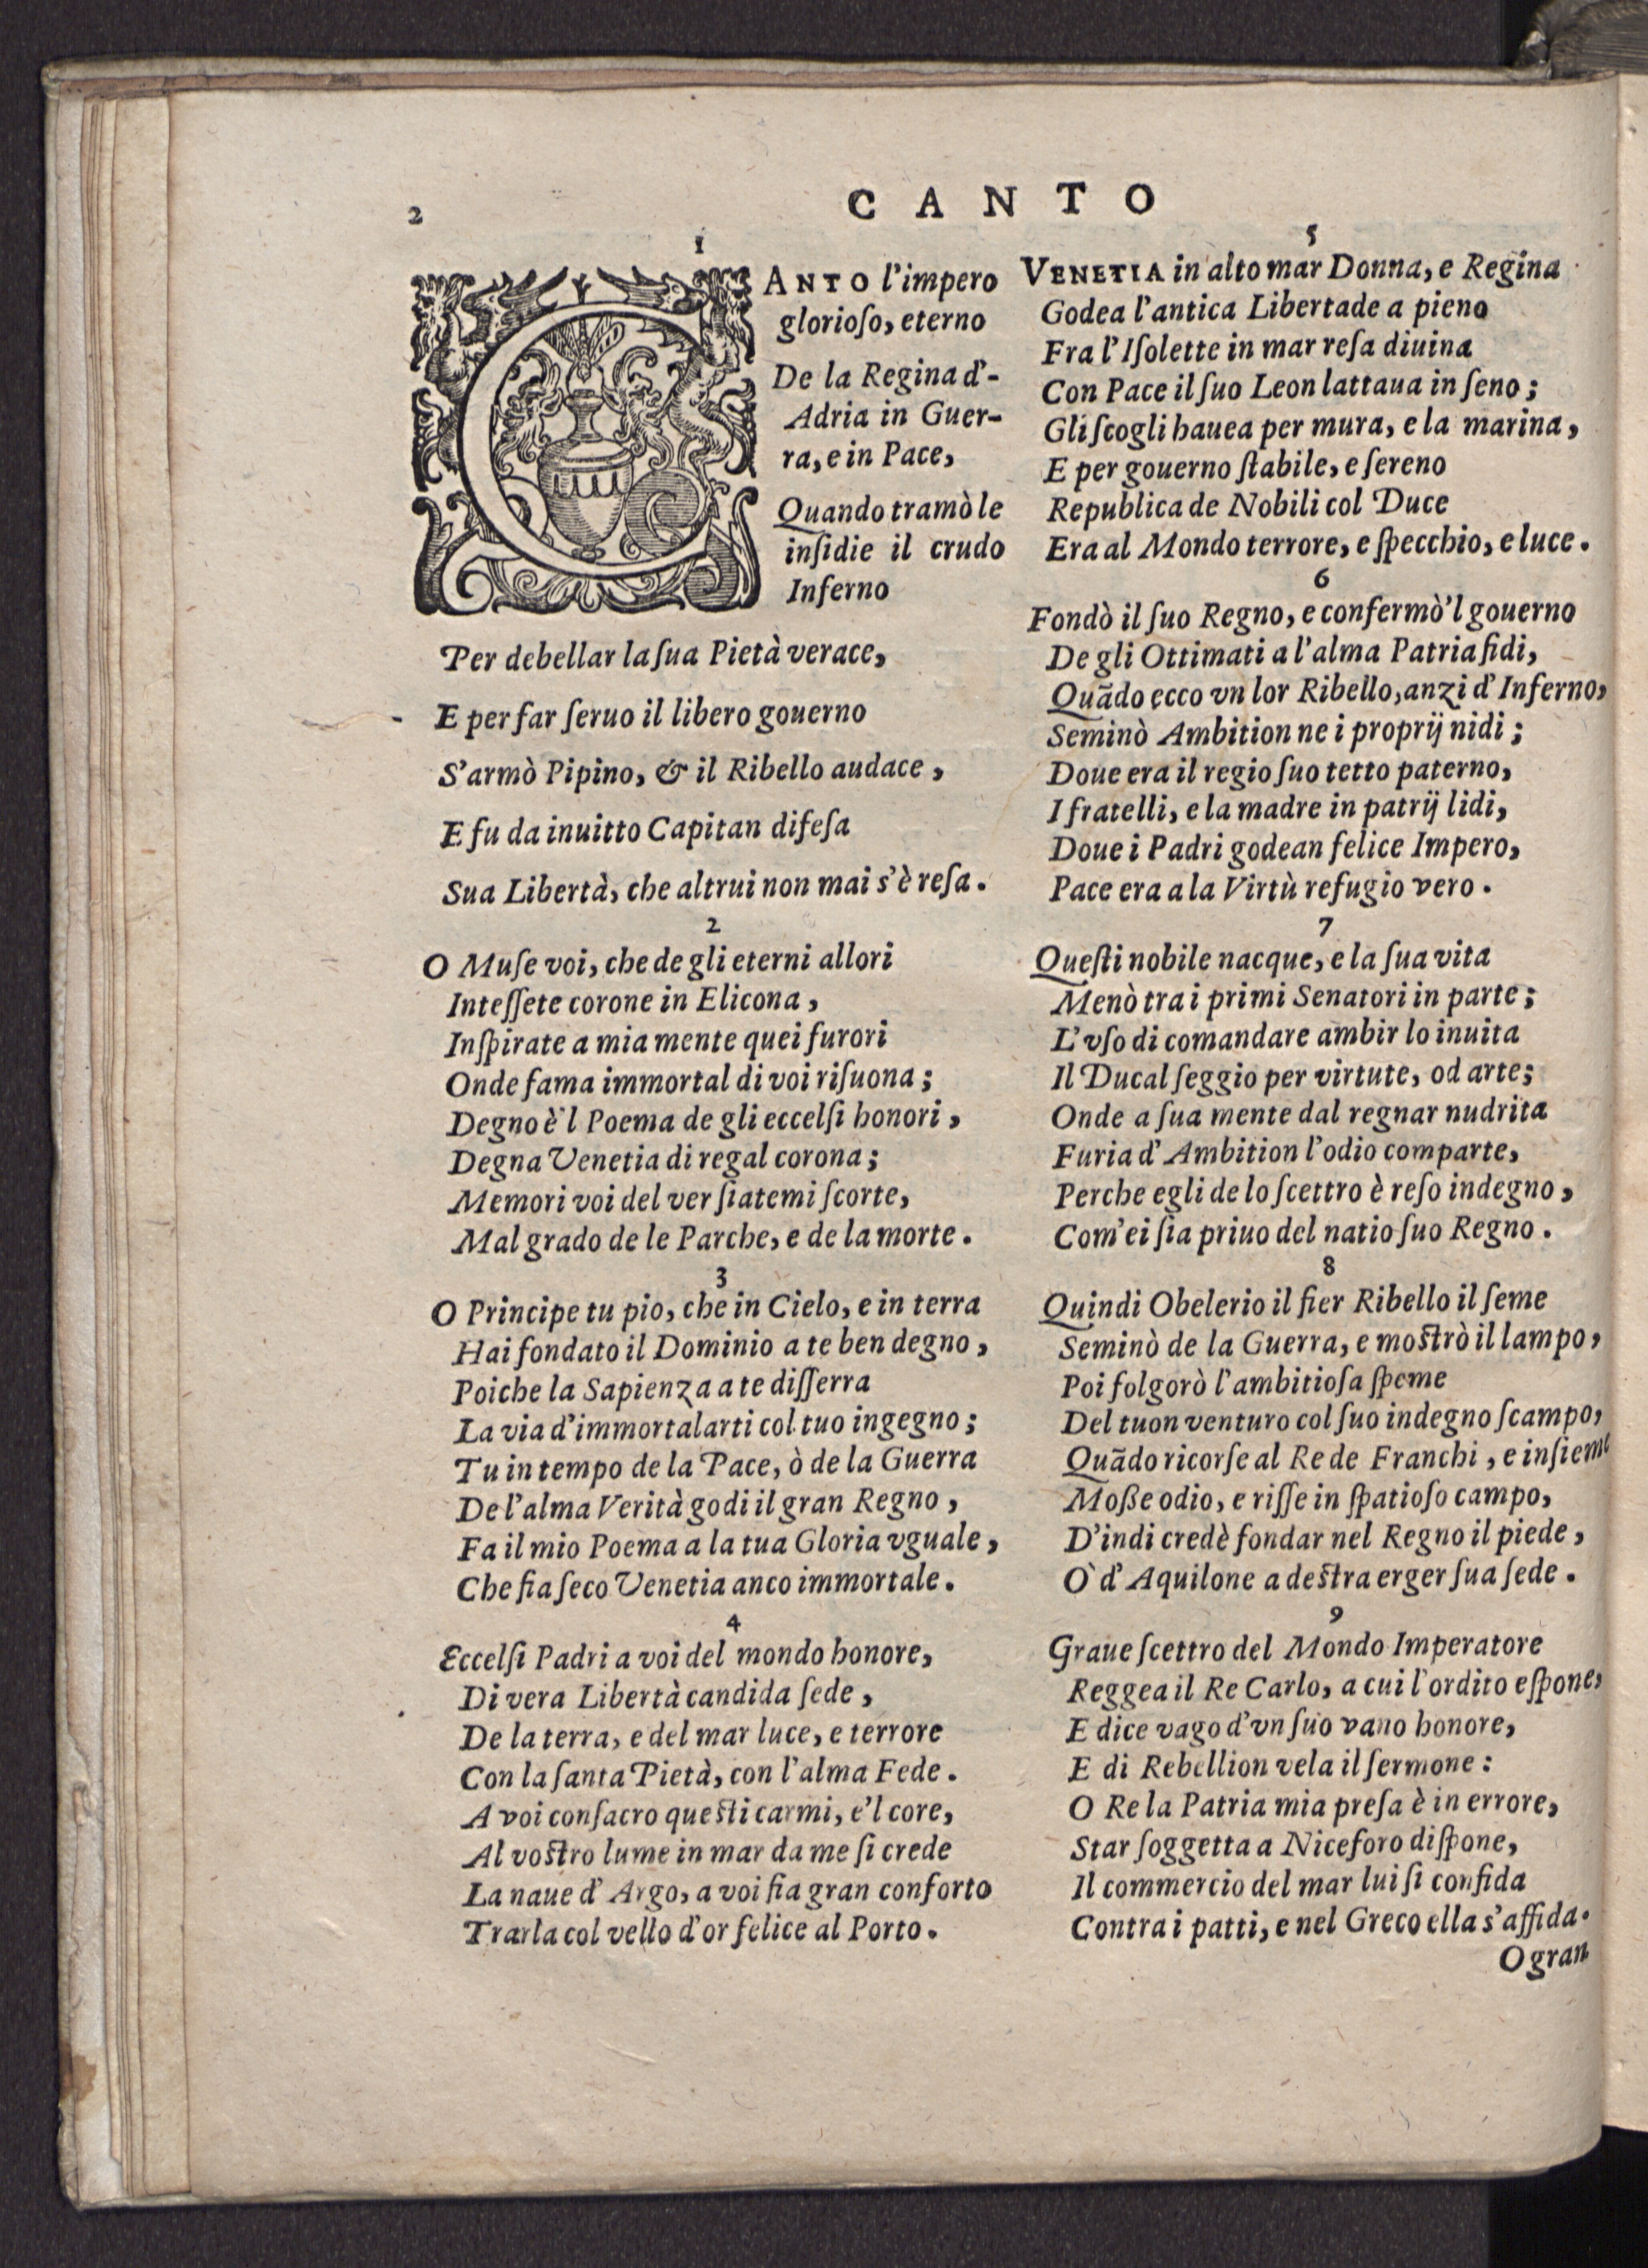 2
CANTO
1
CANTO l'impero
glorioſo, eterno
De la Regina d'-
Adria in Guer-
ra, e in Pace,
Quando tramò le
inſidie il crudo
Inferno
Per debellar la ſua Pietà verace,
E per far ſeruo il libero gouerno
S'armò Pipino, & il Ribello audace,
E fu da inuitto Capitan difeſa
Sua Libertà, che altrui non mai s'è reſa.
2
O Muſe voi, che de gli eterni allori
Inteſſete corone in Elicona,
Inſpirate a mia mente quei furori
Onde fama immortal di voi riſuona;
Degno è'l Poema de gli eccelſi honori,
Degna Venetia di regal corona;
Memori voi del ver ſiatemi ſcorte,
Mal grado de le Parche, e de la morte.
3
O Principe tu pio, che in Cielo, e in terra
Hai fondato il Dominio a te ben degno,
Poiche la Sapienza a te diſſerra
La via d'immortalarti col tuo ingegno;
Tu in tempo de la Pace, ò de la Guerra
De l'alma Verità godi il gran Regno,
Fa il mio Poema a la tua Gloria vguale,
Che fia ſeco Venetia anco immortale.
4
Eccelſi Padri a voi del mondo honore,
Di vera Libertà candida ſede,
De la terra, e del mar luce, e terrore
Con la ſanta Pietà, con l'alma Fede.
A voi conſacro queſti carmi, e'l core,
Al voſtro lume in mar da me ſi crede
La naue d'Argo, a voi fia gran conforto
Trarla col vello d'or felice al Porto.
5
VENETIA in alto mar Donna, e Regina
Godea l'antica Libertade a pieno
Fra l'Iſolette in mar reſa diuina
Con Pace il ſuo Leon lattaua in ſeno;
Gli ſcogli hauea per mura, e la marina,
E per gouerno ſtabile, e ſereno
Republica de Nobili col Duce
Era al Mondo terrore, e ſpecchio, e luce.
6
Fondò il ſuo Regno, e confermò'l gouerno
De gli Ottimati a l'alma Patria fidi,
Quãdo ecco vn lor Ribello, anzi d'Inferno,
Seminò Ambition ne i proprij nidi;
Doue era il regio ſuo tetto paterno,
I fratelli, e la madre in patrij lidi,
Doue i Padri godean felice Impero,
Pace era a la Virtù refugio vero.
7
Queſti nobile nacque, e la ſua vita
Menò tra i primi Senatori in parte;
L'vſo di comandare ambir lo inuita
Il Ducal ſeggio per virtute, od arte;
Onde a ſua mente dal regnar nudrita
Furia d'Ambition l'odio comparte,
Perche egli de lo ſcettro è reſo indegno,
Com'ei ſia priuo del natio ſuo Regno.
8
Quindi Obelerio il fier Ribello il ſeme
Seminò de la Guerra, e moſtrò il lampo,
Poi folgorò l'ambitioſa ſpeme
Del tuon venturo col ſuo indegno ſcampo,
Quãdo ricorſe al Re de Franchi, e inſieme
Moße odio, e riſſe in ſpatioſo campo,
D'indi credè fondar nel Regno il piede,
Ò d'Aquilone a deſtra erger ſua ſede.
9
Graue ſcettro del Mondo Imperatore
Reggea il Re Carlo, a cui l'ordito eſpone,
E dice vago d'vn ſuo vano honore,
E di Rebellion vela il ſermone:
O Re la Patria mia preſa è in errore,
Star ſoggetta a Niceforo diſpone,
Il commercio del mar lui ſi confida
Contra i patti, e nel Greco ella s'affida.
O gran